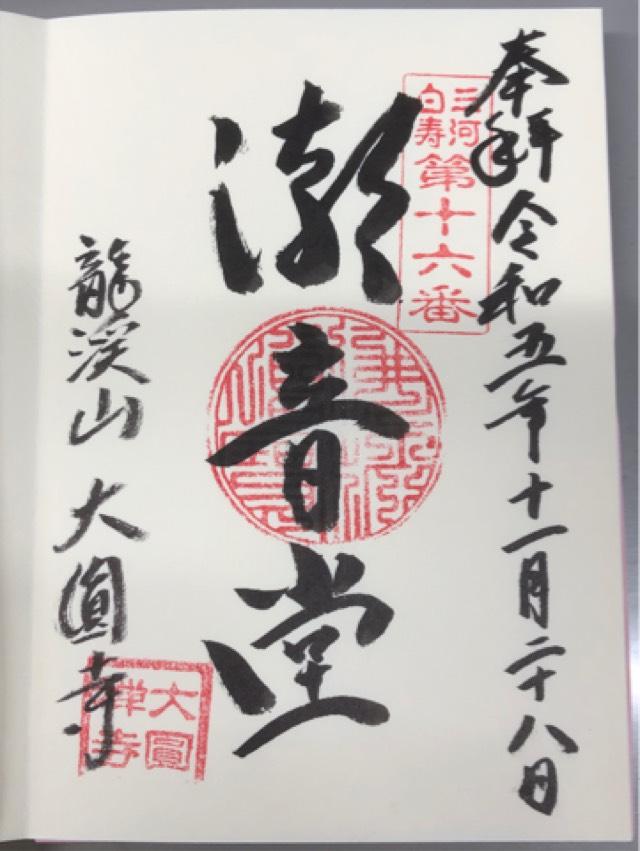 奉拝 令和五年十一月二十八日
三河
白寿
第十六番
潮音堂
龍渓山 大圓寺
大圓
禅寺